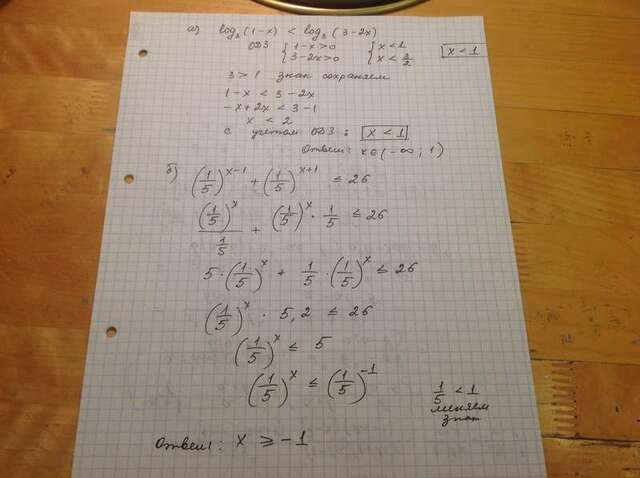 а) log₃(1-x) < log₃(3-2x)
ОДЗ { 1-x>0 { x<1
{ 3-2x>0 { x< 3/2 x<1
3>1 знак сохраняем
1-x < 3-2x
-x+2x < 3-1
x < 2
с учетом ОДЗ: x<1
Ответ: x∈(-∞; 1)
б) (1/5)^(x-1) + (1/5)^(x+1) ≤ 26
(1/5)^x / (1/5) + (1/5)^x · 1/5 ≤ 26
5·(1/5)^x + 1/5·(1/5)^x ≤ 26
(1/5)^x · 5,2 ≤ 26
(1/5)^x ≤ 5
(1/5)^x ≤ (1/5)^-1
1/5 < 1
меняем
знак
Ответ: x ≥ -1